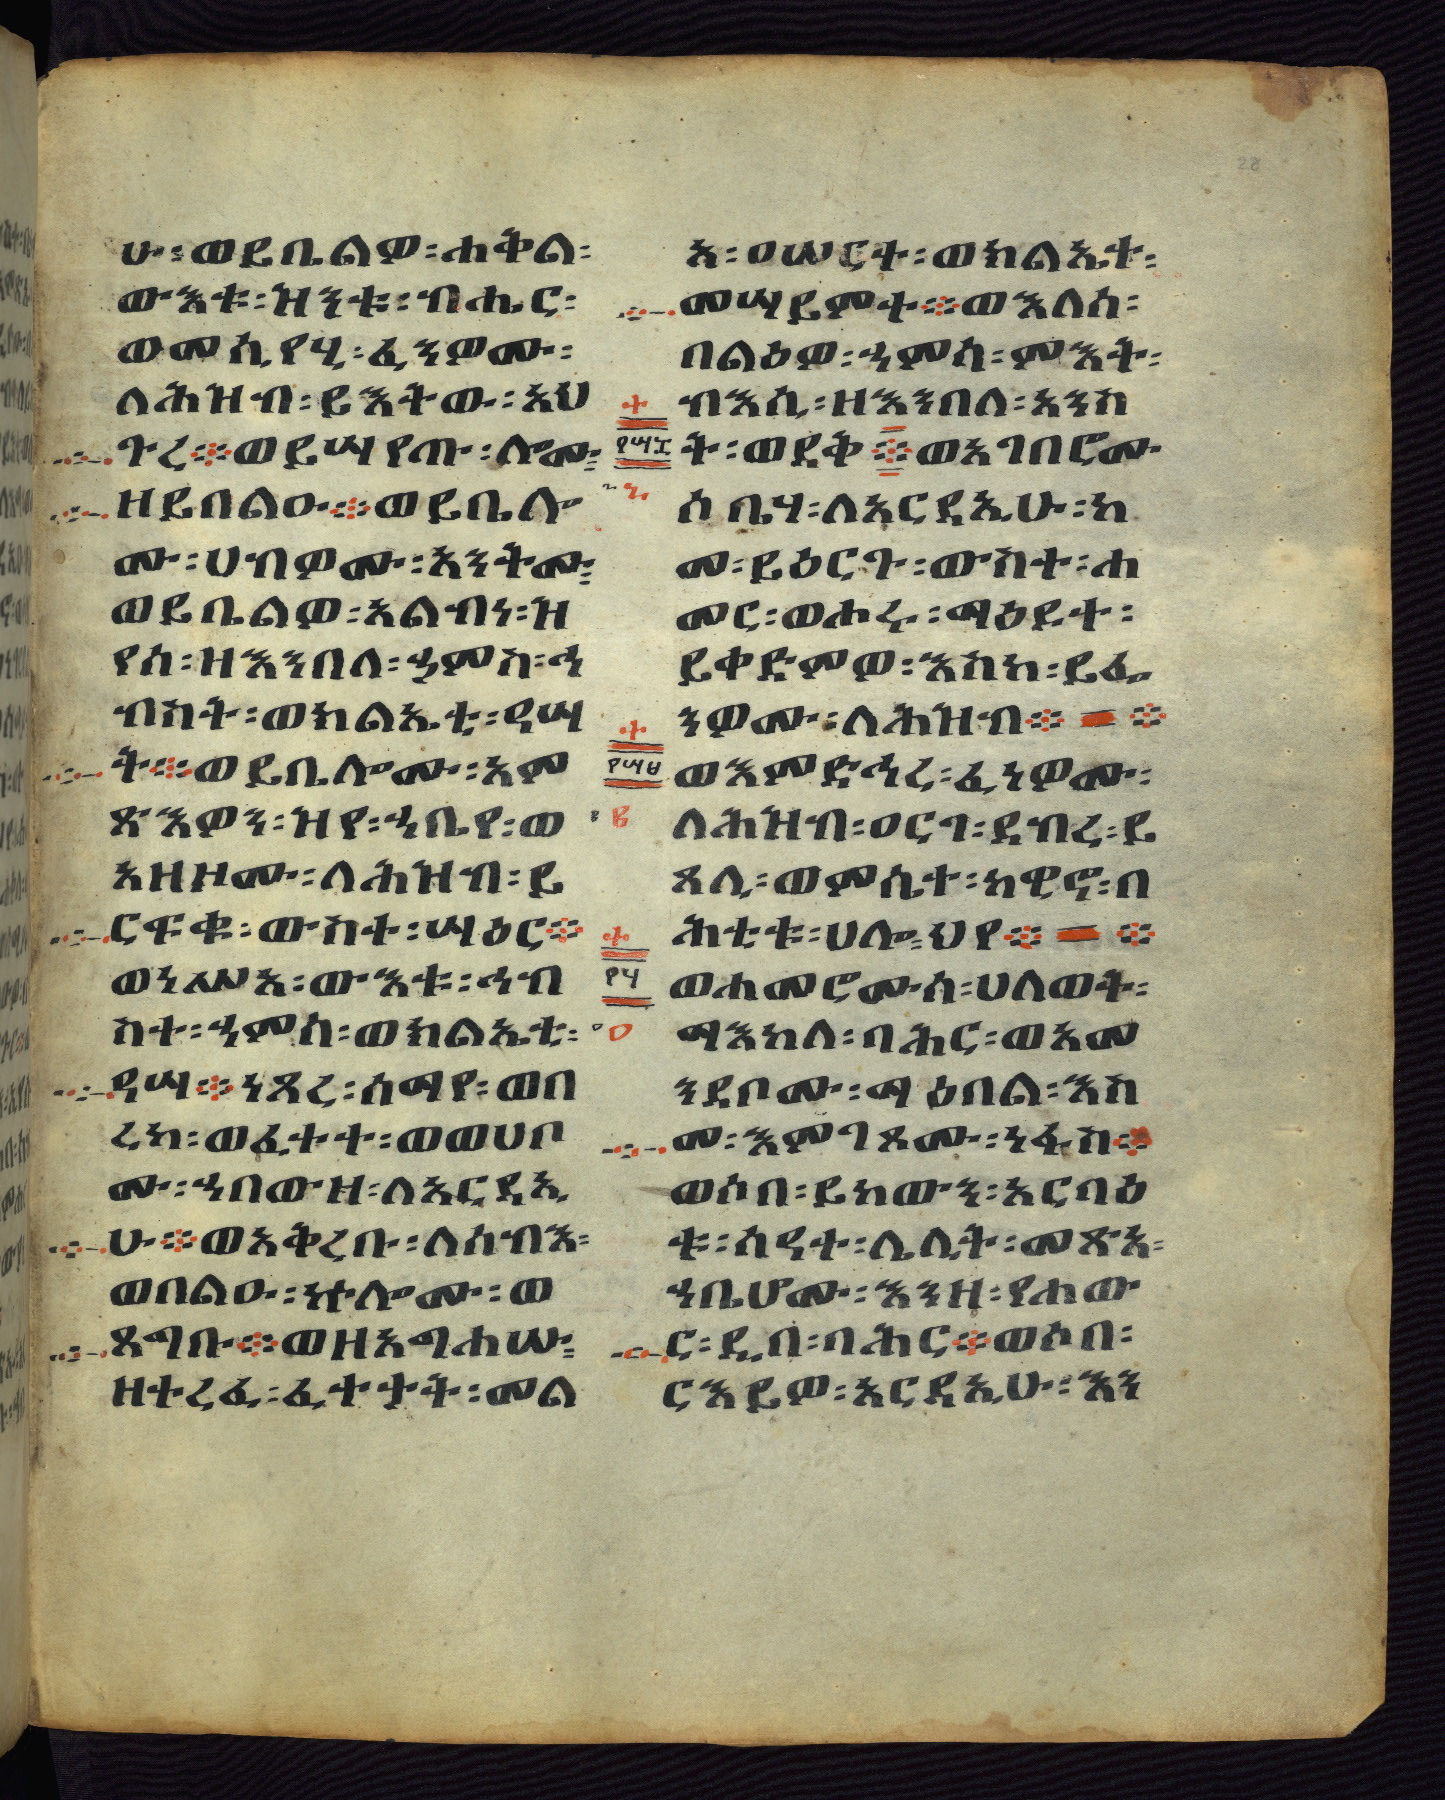 ሁ፡ወይቤልዎ፡ሐቅል፡
ውእቱ፡ዝንቱ፡ብሔር፡
ወመስየሂ፡ፈንዎሙ፡
ለሕዝብ፡ይእትው፡አህ
ጉረ፨ወይሣየጡ፡ሎሙ፡
ዘይበልዑ፨ወይቤሎ
ሙ፡ሀብዎሙ፡አንትሙ፡
ወይቤልዎ፡አልብነ፡ዝ
የስ፡ዘእንበለ፡ኃምስ፡ኀ
ብስት፡ወክልኤቲ፡ዓሣ
ት፨ወይቤሎሙ፡አም
ጽእዎን፡ዝየ፡ኀቤየ፡ወ
አዘዞሙ፡ለሕዝብ፡ይ
ርፍቁ፡ውስተ፡ሣዕር፨
ወነሥአ፡ውእቱ፡ኀብ
ስተ፡ኃምስ፡ወክልኤቲ፡
ዓሣ፨ነጸረ፡ሰማየ፡ወባ
ረከ፡ወፈተተ፡ወወሀቦ
ሙ፡ኀበውዘ፡ለአርዳኢ
ሁ፨ወአቅረቡ፡ለሰብእ፡
ወበልዑ፡ኵሎሙ፡ወ
ጸግቡ፨ወዘአግሐሡ፡
ዘተረፈ፡ፈተታት፡መል
አ፡ዐሠርተ፡ወክልኤተ፡
መሣይምተ፨ወእለሰ፡
በልዕዎ፡ኃምስ፡ምእት፡
ብእሲ፡ዘእንበለ፡አንስ
ት፡ወደቅ፨ወአገበሮሙ
ሶቤሃ፡ለአርዳኢሁ፡ከ
መ፡ይዕርጉ፡ውስተ፡ሐ
መር፡ወሐሩ፡ማዕዶተ፡
ይቀድምዎ፡እስከ፡ይፌ
ንዎሙ፡ለሕዝብ፨ ፨
፻፵፰
ወእምድኅረ፡ፈነዎሙ፡
ለሕዝብ፡ዐርገ፡ደብረ፡ይ
ጸሊ፡ወምሴተ፡ከዊኖ፡በ
ሕቲቱ፡ሀሎ፡ህየ፨ ፨
፻፶
ወሐመሮሙሰ፡ሀለወት፡
ማእከለ፡ባሕር፡ወአመ
ንደቦሙ፡ማዕበል፡እስ
መ፡እምገጾሙ፡ነፋስ፨
ወሶበ፡ይከውን፡አርባዕ
ቱ፡ሰዓተ፡ሌሊት፡መጽአ፡
ኀቤሆሙ፡እንዘ፡የሐው
ር፡ዲበ፡ባሕር፨ወሶበ፡
ርእይዎ፡አርዳኢሁ፡እን